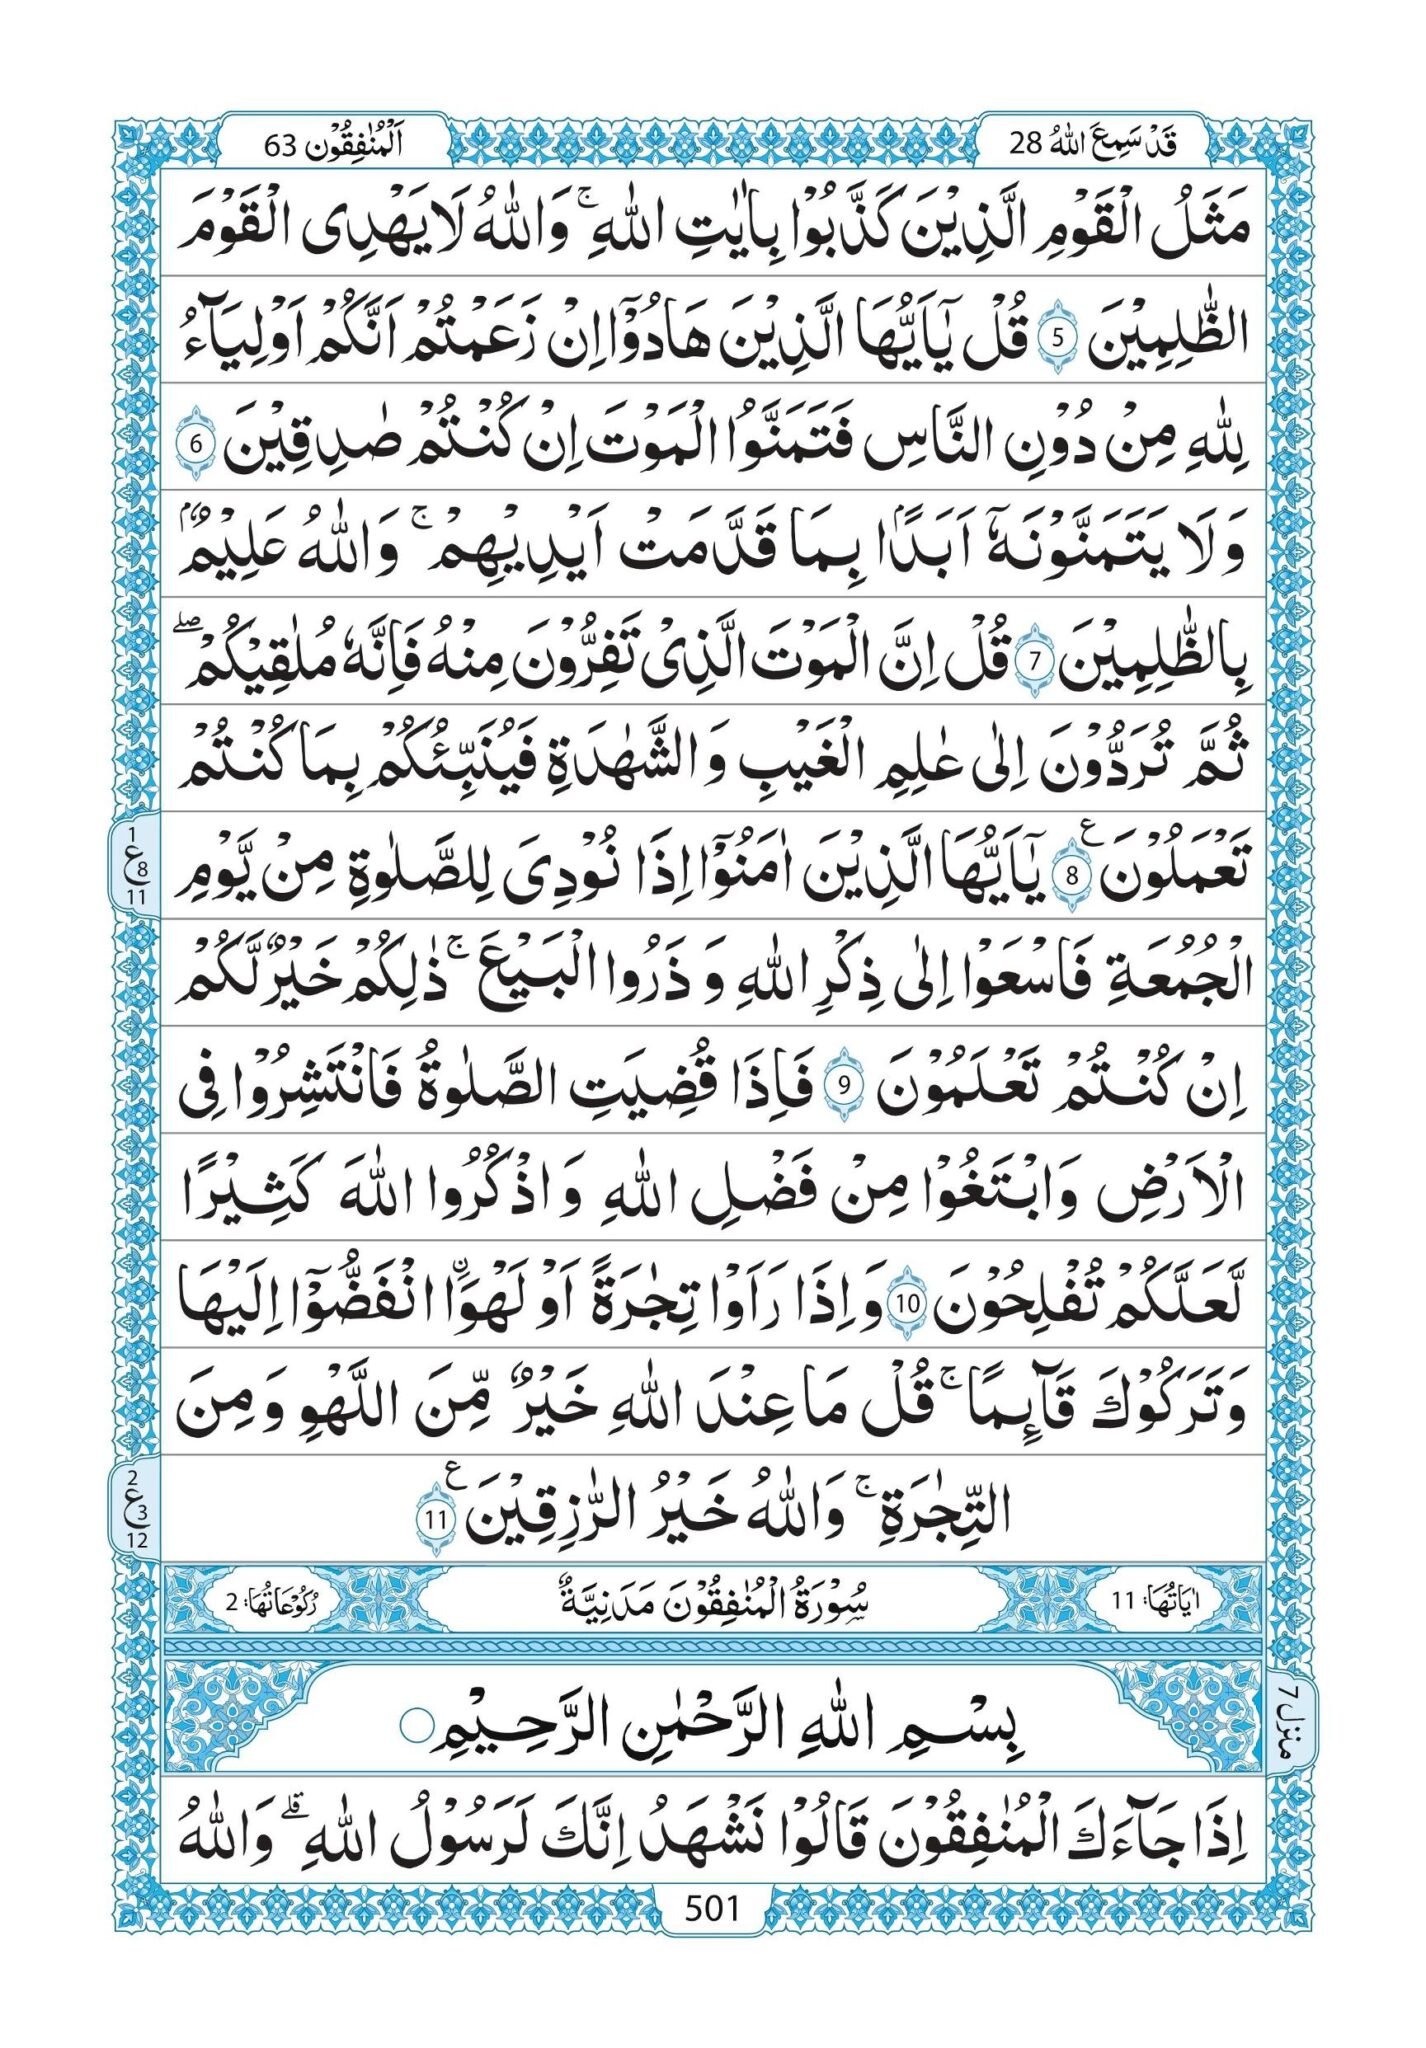 قَدْ سَمِعَ اللّٰهُ 28
اَلْمُنٰفِقُوْن 63
مَثَلُ الْقَوْمِ الَّذِيْنَ كَذَّبُوْا بِاٰيٰتِ اللّٰهِ ۚ وَاللّٰهُ لَا يَهْدِى الْقَوْمَ
الظّٰلِمِيْنَ 5 قُلْ يٰۤاَيُّهَا الَّذِيْنَ هَادُوْۤا اِنْ زَعَمْتُمْ اَنَّكُمْ اَوْلِيَآءُ
لِلّٰهِ مِنْ دُوْنِ النَّاسِ فَتَمَنَّوُا الْمَوْتَ اِنْ كُنْتُمْ صٰدِقِيْنَ 6
وَلَا يَتَمَنَّوْنَهٗۤ اَبَدًۢا بِمَا قَدَّمَتْ اَيْدِيْهِمْ ۚ وَاللّٰهُ عَلِيْمٌۢ
بِالظّٰلِمِيْنَ 7 قُلْ اِنَّ الْمَوْتَ الَّذِىْ تَفِرُّوْنَ مِنْهُ فَاِنَّهٗ مُلٰقِيْكُمْ ۖ
ثُمَّ تُرَدُّوْنَ اِلٰى عٰلِمِ الْغَيْبِ وَالشَّهٰدَةِ فَيُنَبِّئُكُمْ بِمَا كُنْتُمْ
تَعْمَلُوْنَ ۧ 8 يٰۤاَيُّهَا الَّذِيْنَ اٰمَنُوْۤا اِذَا نُوْدِىَ لِلصَّلٰوةِ مِنْ يَّوْمِ
1
ع 8
11
الْجُمُعَةِ فَاسْعَوْا اِلٰى ذِكْرِ اللّٰهِ وَذَرُوا الْبَيْعَ ۚ ذٰلِكُمْ خَيْرٌ لَّكُمْ
اِنْ كُنْتُمْ تَعْلَمُوْنَ 9 فَاِذَا قُضِيَتِ الصَّلٰوةُ فَانْتَشِرُوْا فِى
الْاَرْضِ وَابْتَغُوْا مِنْ فَضْلِ اللّٰهِ وَاذْكُرُوا اللّٰهَ كَثِيْرًا
لَّعَلَّكُمْ تُفْلِحُوْنَ 10 وَاِذَا رَاَوْا تِجٰرَةً اَوْ لَهْوَا۟ۨ انْفَضُّوْۤا اِلَيْهَا
وَتَرَكُوْكَ قَآىِٕمًا ۚ قُلْ مَا عِنْدَ اللّٰهِ خَيْرٌ مِّنَ اللَّهْوِ وَمِنَ
التِّجٰرَةِ ۚ وَاللّٰهُ خَيْرُ الرّٰزِقِيْنَ ۧ 11
2
ع 3
12
اٰيَاتُهَا: 11
سُوْرَةُ الْمُنٰفِقُوْنَ مَدَنِيَّةٌ
رُكُوْعَاتُهَا: 2
بِسْمِ اللّٰهِ الرَّحْمٰنِ الرَّحِيْمِ
منزل 7
اِذَا جَآءَكَ الْمُنٰفِقُوْنَ قَالُوْا نَشْهَدُ اِنَّكَ لَرَسُوْلُ اللّٰهِ ۘ وَاللّٰهُ
501